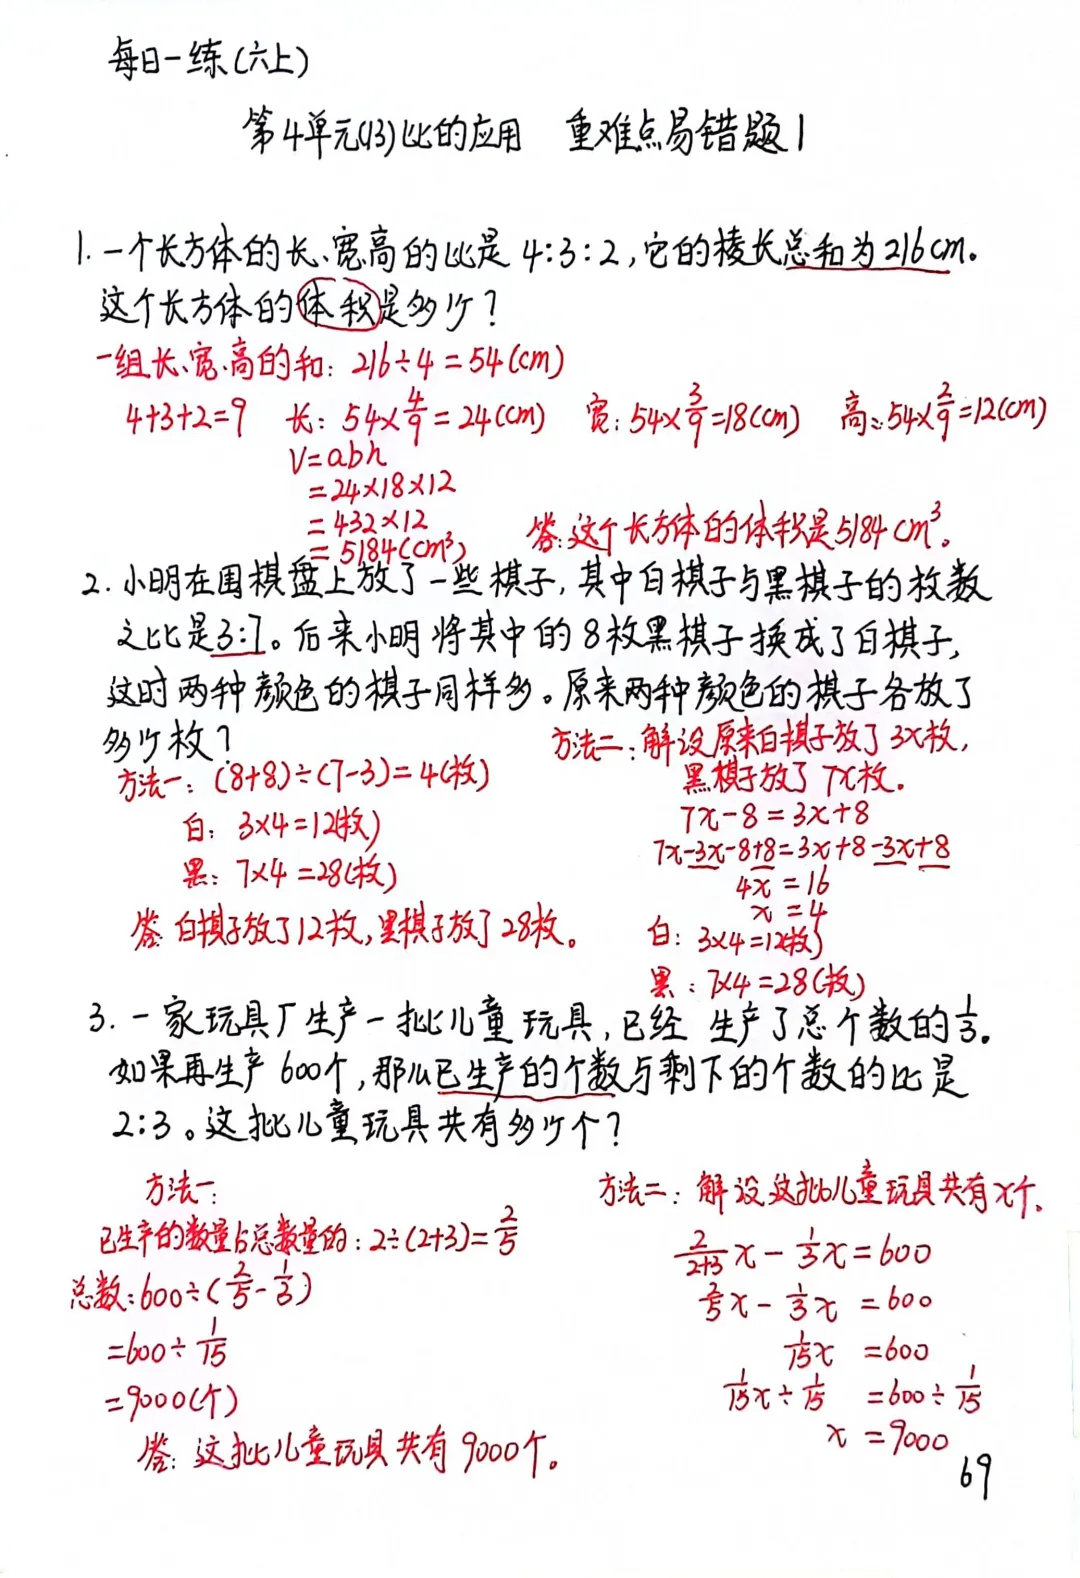 每日一练(六上)
第4单元(13)比的应用 重难点易错题1
1. 一个长方体的长、宽、高的比是4:3:2,它的棱长总和为216cm。
这个长方体的体积是多少?
一组长、宽、高的和: 216÷4=54(cm)
4+3+2=9 长: 54×4/9=24(cm) 宽: 54×3/9=18(cm) 高: 54×2/9=12(cm)
V=abh
=24×18×12
=432×12
=5184(cm³) 答:这个长方体的体积是5184cm³。
2. 小明在围棋盘上放了一些棋子,其中白棋子与黑棋子的枚数
之比是3:7。后来小明将其中的8枚黑棋子换成了白棋子,
这时两种颜色的棋子同样多。原来两种颜色的棋子各放了
多少枚?
方法一: (8+8)÷(7-3)=4(枚)
白: 3×4=12(枚)
黑: 7×4=28(枚)
答:白棋子放了12枚,黑棋子放了28枚。
方法二:解设原来白棋子放了3x枚,
黑棋子放了7x枚.
7x-8=3x+8
7x-3x-8+8=3x+8-3x+8
4x=16
x=4
白: 3×4=12(枚)
黑: 7×4=28(枚)
3. 一家玩具厂生产一批儿童玩具,已经生产了总个数的1/3.
如果再生产600个,那么已生产的个数与剩下的个数的比是
2:3。这批儿童玩具共有多少个?
方法一:
已生产的数量占总数量的: 2÷(2+3)=2/5
总数: 600÷(2/5-1/3)
=600÷1/15
=9000(个)
答:这批儿童玩具共有9000个。
方法二: 解设这批儿童玩具共有x个。
2/(2+3)x-1/3x=600
2/5x-1/3x=600
1/15x=600
1/15x÷1/15=600÷1/15
x=9000
69